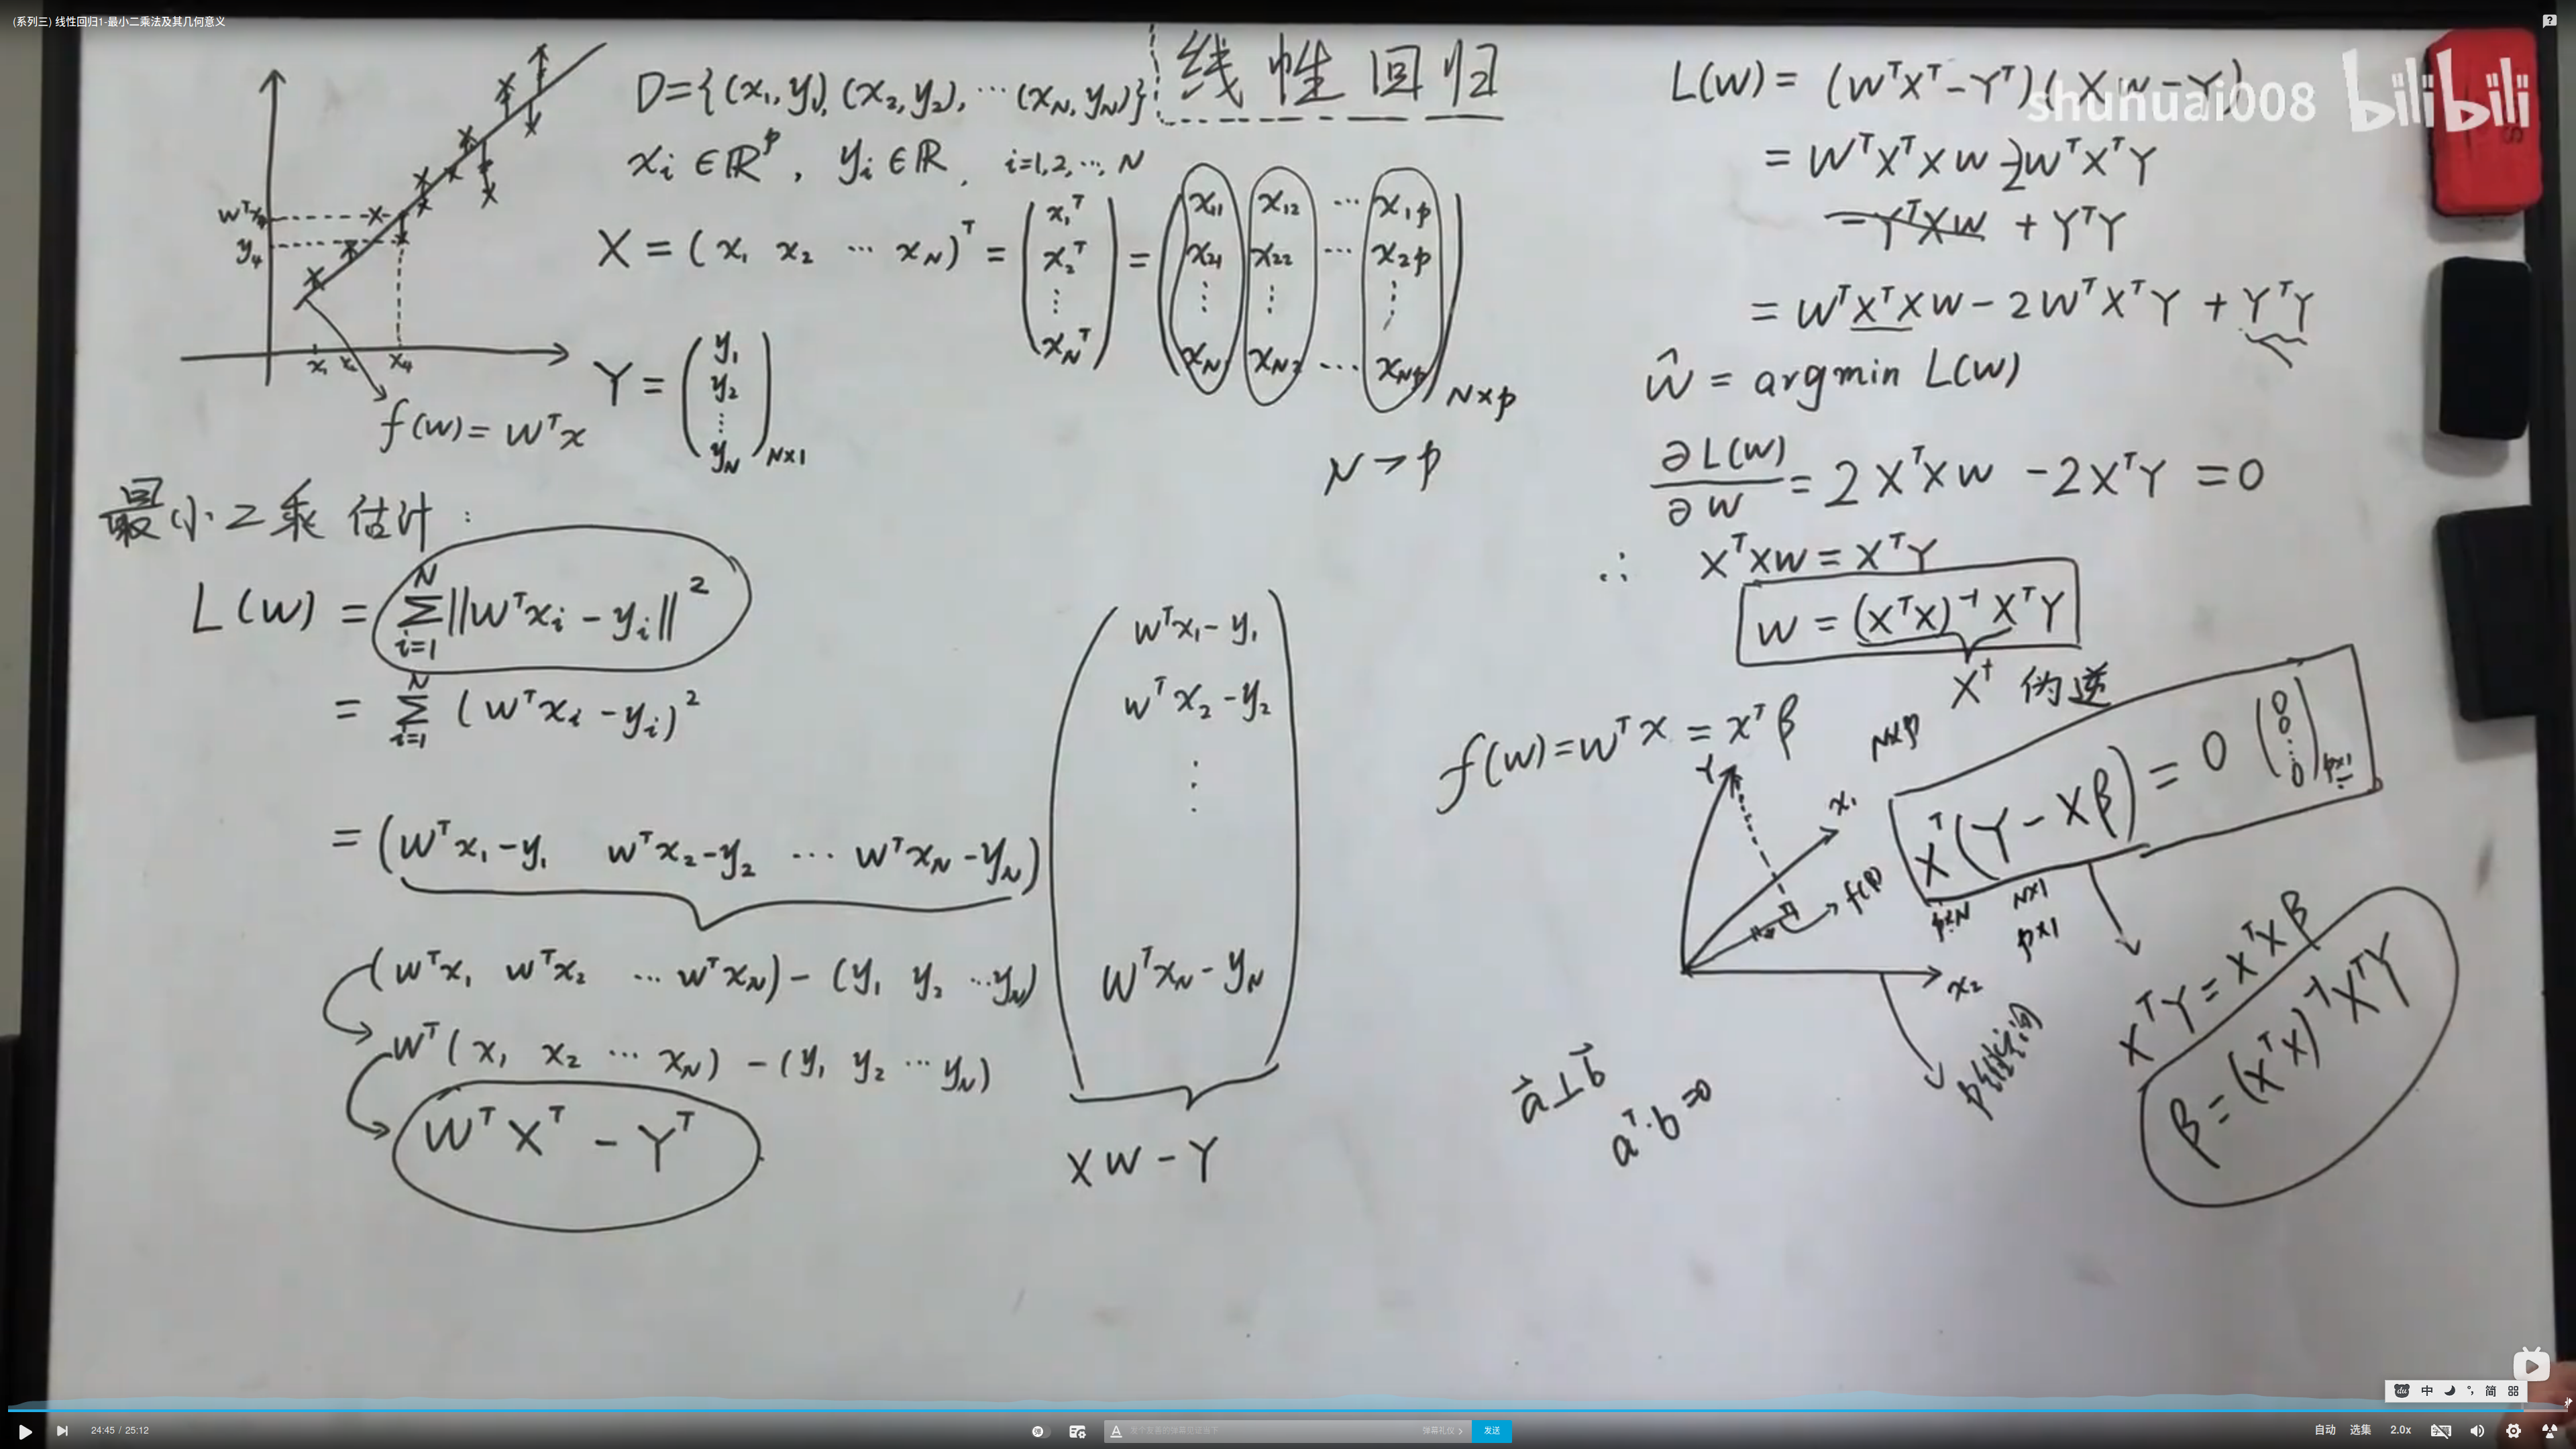 (系列三) 线性回归1-最小二乘法及其几何意义
线性回归
D={(x₁,y₁),(x₂,y₂),⋯(x_N,y_N)}
xᵢ∈ℝᵖ, yᵢ∈ℝ, i=1,2,⋯,N
X = (x₁ x₂ ⋯ x_N)ᵀ = (x₁ᵀ x₂ᵀ ⋮ x_Nᵀ) = (x₁₁ x₁₂ ⋯ x₁p
x₂₁ x₂₂ ⋯ x₂p
⋮ ⋮ ⋮
x_N₁ x_N₂ ⋯ x_Np) N×p
Y = (y₁ y₂ ⋮ y_N) N×1
N > p
wᵀx₄
y₄
x₁ x₂ x₄
f(w) = wᵀx
最小二乘估计:
L(w) = Σ_{i=1}^{N} ‖wᵀxᵢ - yᵢ‖²
= Σ_{i=1}^{N} (wᵀxᵢ - yᵢ)²
= (wᵀx₁-y₁ wᵀx₂-y₂ ⋯ wᵀx_N-y_N)
(wᵀx₁-y₁
wᵀx₂-y₂
⋮
wᵀx_N-y_N)
(wᵀx₁ wᵀx₂ ⋯ wᵀx_N) - (y₁ y₂ ⋯ y_N)
wᵀ(x₁ x₂ ⋯ x_N) - (y₁ y₂ ⋯ y_N)
wᵀXᵀ - Yᵀ
Xw - Y
L(w) = (wᵀXᵀ-Yᵀ)(Xw-Y)
= wᵀXᵀXw - 2wᵀXᵀY
- YᵀXw + YᵀY
= wᵀXᵀXw - 2wᵀXᵀY + YᵀY
ŵ = argmin L(w)
∂L(w)/∂w = 2XᵀXw - 2XᵀY = 0
∴ XᵀXw = XᵀY
w = (XᵀX)⁻¹XᵀY
X† 伪逆
f(w) = wᵀx = xᵀβ
N×p
Y
x₁
f(β)
x₂
p维空间
Xᵀ(Y-Xβ) = 0 (0 0 ⋮ 0) p×1
p×N N×1
p×1
XᵀY = XᵀXβ
β = (XᵀX)⁻¹XᵀY
a⃗⊥b⃗
aᵀ·b=0
shuhuai008 bilibili
中 简
24:45 / 25:12
弹幕礼仪
发送
自动 选集 2.0x